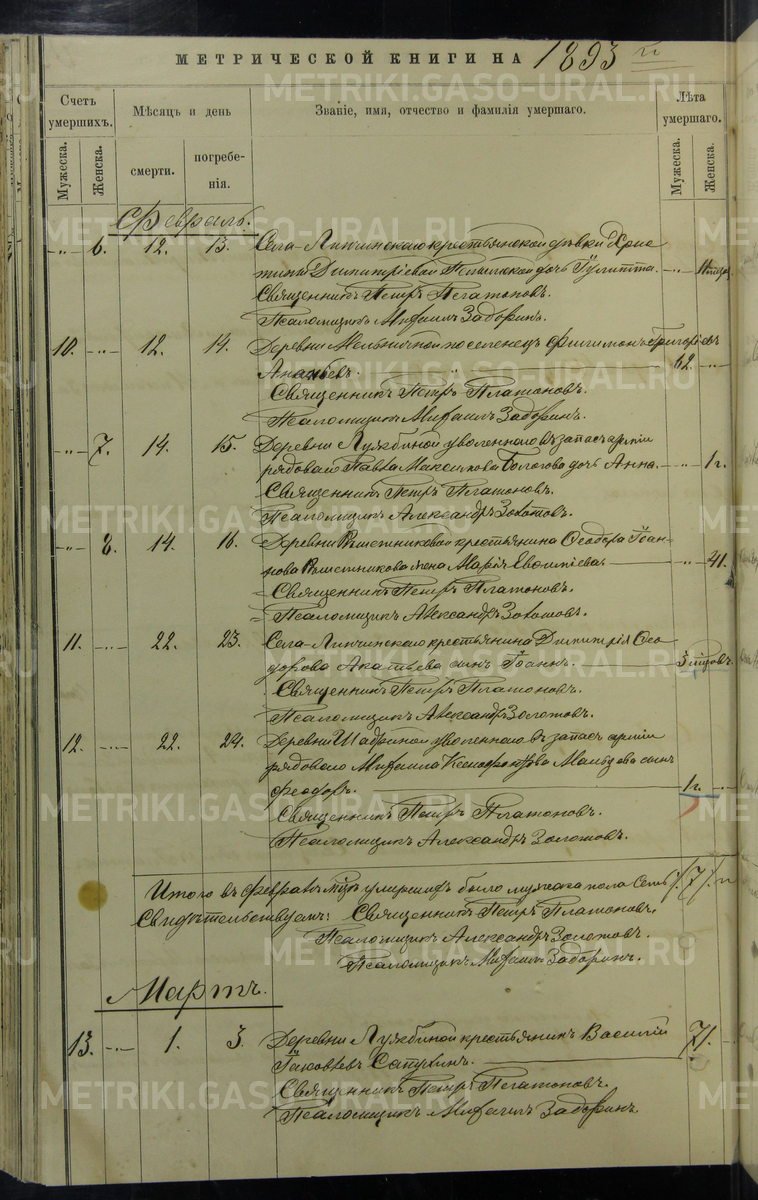 МЕТРИЧЕСКОЙ КНИГИ НА 1893 й
Счетъ умершихъ. Мѣсяцъ и день Званіе, имя, отчество и фамилія умершаго. Лѣта умершаго.
Мужеска. Женска. смерти. погребенія. Мужеска. Женска.
Февраль.
6. 12. 13. Села Липчинскаго крестьянской дѣвки Хри-
тины Димитріевой дочь Іулитта.
Священникъ Петръ Платоновъ.
Псаломщикъ Михаилъ Задоринъ.
10. 12. 14. Деревни Мельничной поселенецъ Филимонъ Григоріевъ
Ананьевъ. 62.
Священникъ Петръ Платоновъ.
Псаломщикъ Михаилъ Задоринъ.
7. 14. 15. Деревни Лужбиной уволеннаго въ запасъ арміи
рядоваго Павла Максимова дочь Анна. 1 г.
Священникъ Петръ Платоновъ.
Псаломщикъ Александръ Золотовъ.
8. 14. 16. Деревни Рѣшетниковой крестьянина Ѳеодора Іоан-
нова Рѣшетникова жена Марія Евѳиміева. 41.
Священникъ Петръ Платоновъ.
Псаломщикъ Александръ Золотовъ.
11. 22. 23. Села Липчинскаго крестьянина Димитрія Ѳео-
дорова Акатьева сынъ Іоаннъ. 3
Священникъ Петръ Платоновъ.
Псаломщикъ Александръ Золотовъ.
12. 22. 24. Деревни Шадриной уволеннаго въ запасъ арміи
рядоваго Михаила Ксенофонтова сынъ
Ѳеодоръ. 1 г.
Священникъ Петръ Платоновъ.
Псаломщикъ Александръ Золотовъ.
Итого въ Февралѣ м-цѣ умершихъ было мужеска пола семь /7/
Свидѣтельствуемъ: Священникъ Петръ Платоновъ.
Псаломщикъ Александръ Золотовъ.
Псаломщикъ Михаилъ Задоринъ.
Мартъ.
13. 1. 3. Деревни Лужбиной крестьянинъ Василій 71.
Іаковлевъ Сапухинъ.
Священникъ Петръ Платоновъ.
Псаломщикъ Михаилъ Задоринъ.
METRIKI.GASO-URAL.RU